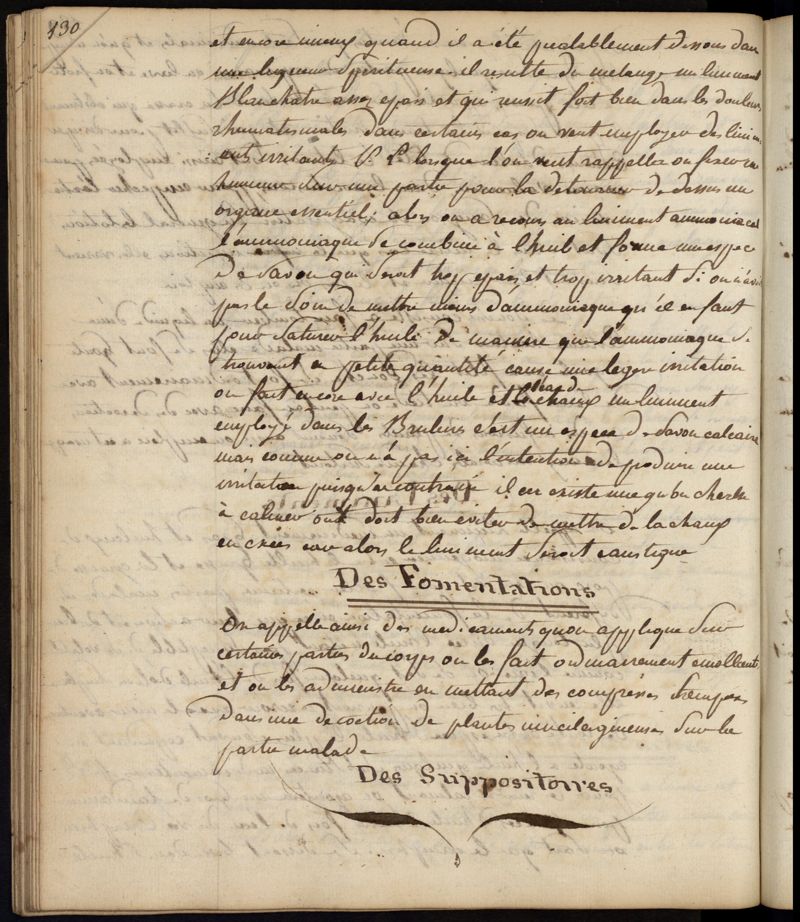 130
et encore mieux quand il a été prealablement dissous dans
une liqueur Spiritueuse. il resulte du melange un liniment
Blanchatre assez epais et qui reussit fort bien dans les douleurs
rhumatismales dans certains cas on veut employer des lini
ments irritants lorsque l'on veut rappeller ou fixer une
humeur sur une partie pour la detourner de dessus un
organe essentiel; alors on a recours au liniment ammoniacal
l'ammoniaque se combine à l'huile et forme une espece
De Savon qui Seroit trop epais et trop irritant Si on n'avoit
pas le Soin de mettre moins d'ammoniaque qu'il en faut
pour Saturer l'huile De maniere que l'ammoniaque se
trouvant en petite quantité cause une legere irritation
on fait encore avec l'huile et l'eau de chaux un liniment
employé dans les Brulures c'est un espece de Savon calcaire
mais comme on n'a pas ici l'intention de produire une
irritation puisqu'au contraire il en existe une qu'on cherche
à calmer on doit bien eviter de mettre de la chaux
en excès car alors le liniment Seroit caustique
Des Fomentations
On appelle ainsi des medicaments qu'on applique Sur
certaines parties du corps on les fait ordinairement emollients
et on les administre en mettant des compresses trempees
Dans une decoction de plantes mucilagineuses Sur la
partie malade
Des Suppositoires